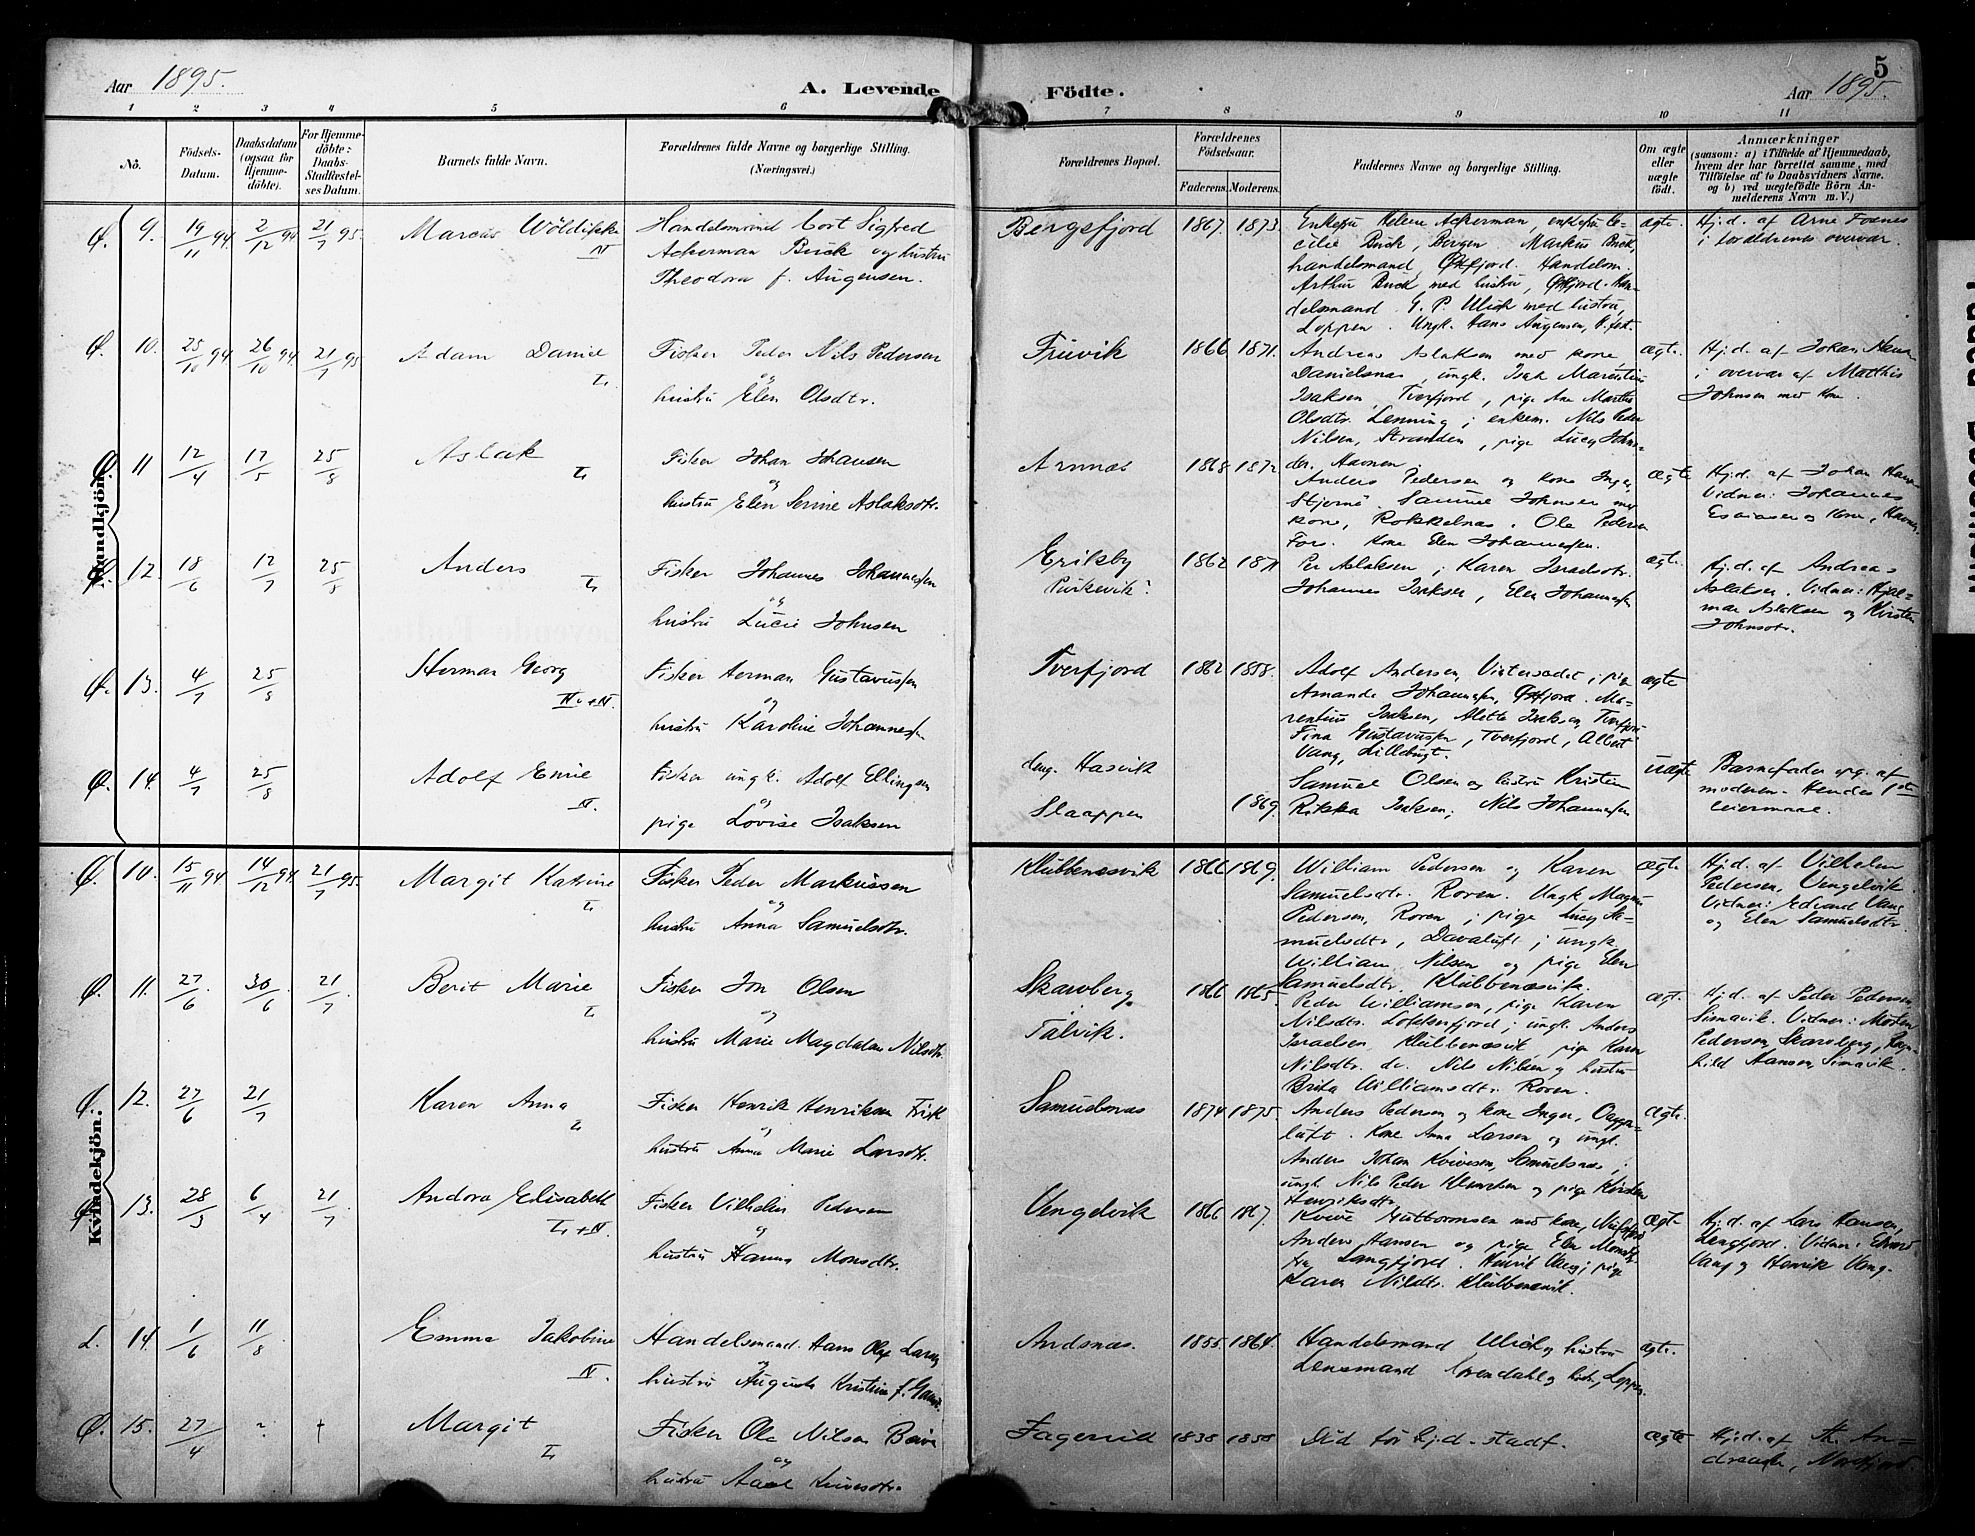 Aar 1895.
A. Levende
Födte.
5
Aar 1895.
1 2 3 4 5 6 7 8 9 10 11
No.
Födsels-
Datum.
Daabsdatum
(ogsaa for
Hjemme-
döbte).
For Hjemme-
döbte:
Daabs-
Stadfæstel-
ses Datum.
Barnets fulde Navn.
Forældrenes fulde Navne og borgerlige Stilling.
(Næringsvei.)
Forældrenes Bopæl.
Forældrenes
Födselsaar.
Faderens. Moderens.
Faddernes Navne og borgerlige Stilling.
Om ægte
eller
uægte
födt.
Anmærkninger
(saasom: a) i Tilfælde af Hjemmedaab,
hvem der har forrettet samme, med
Tilföielse af to Daabsvidners Navne,
og b) ved uægtefödte Börn An-
melderens Navn m. V.)
Mandkjön.
Ø. 9. 19/11 94 2/12 94 21/7 95.
Marcus Wöldikke
IV
Handelsmand Cort Sigfred
Ackerman Buck og hustru
Theodora f. Augensen.
Bergsfjord 1867. 1873.
Enkefru Helene Ackerman, enkefru Ce-
cilie Buck, Bergen. Markus Buck
handelsmand, Öxfjord. Handelsm.
Arthur Buck med hustru, Öxfjord. Han-
delsmand G. P. Ulich med hustru,
Loppen. Ungk. Hans Augensen,
ægte.
Hj.d. af Arne Fosnes
i forældrenes overvær.
Ø. 10. 25/10 94 26/10 94. 21/7 95
Adam Daniel
I.
Fisker Peder Nils Pedersen
og
hustru Elen Olsdtr.
Fruvik 1866 1871.
Andreas Aslaksen med kone
Danielsnas, ungk. Isak Marentius
Isaksen, Tverfjord, pige Ane Marthe
Olsdtr. Lenning; enkem. Nils Peder
Nilsen, Stranden, pige Lucy Johns-
dtr. Havnen.
ægte.
Hj.d. af Johan Hans-
i overvær af Matthis
Johnsen med kone.
Ø. 11 12/4 17/5 25/8
Aslak
I.
Fisker Johan Johansen
og
hustru Elen Serine Aslaksdtr.
Arnnæs 1868 1872
Anders Pedersen og kone Inger,
Stjernö. Samuel Johnsen med
kone, Rokkelnas. Ole Pedersen
Fors. Kone Elen Johannesen.
ægte
Hj.d. af Johan Hansen
Vidner: Johannes
Esaiasen og Kone, Havnen
Ø. 12. 18/6 12/7 25/8
Anders
I.
Fisker Johannes Johannesen
og
hustru Lucie Johnsen
Eriksby 1862 1871
Per Aslaksen; Karen Israelsdtr.
Johannes Isaksen, Elen Johannesen
ægte.
Hj.d. af Andreas
Aslaksen. Vidner: Hjal-
mar Aslaksen og Kirsten
Johnsdtr.
Ø. 13. 4/7 25/8
Herman Georg
Fisker Herman Gustavussen
og
hustru Karoline Johannesen
Tverfjord 1862 1858.
Adolf Andersen, Vintersædet; pige
Amanda Johannesen, Öxfjord. Ma-
rentius Isaksen, Alette Isaksen, Tverfjord
Fina Gustavussen, Tverfjord, Albert
Vang, Lillebugt.
ægte
Ø. 14. 4/7 25/8
Adolf Emil
IV.
Fisker ungk. Adolf Ellingsen
og
pige Lovise Isaksen
Hasvik
Slaappen 1869.
Samuel Olsen og hustru Kristine
Rikka Isaksen; Nils Johannesen
uægte
Barnefader opg. af
moderen. Hendes 1ste
leiermaal.
Kvindekjön.
Ø. 10. 15/11 94 14/12 94. 21/7 95.
Margit Katrine
I.
Fisker Peder Markussen
og
hustru Anna Samuelsdtr.
Klubbenæsvik 1866 1869.
William Pedersen og Karen
Samuelsdtr. Roren. Ungk. Magnus
Pedersen, Roren; pige Lucy Sa-
muelsdtr, Davaluft; ungk.
William Nilsen og pige Elen
Samuelsdtr. Klubbenæsvik.
ægte.
Hj.d. af Vilhelm
Pedersen, Vengelvik.
Vidner: Edvard Vang
og Elen Samuelsdtr.
Ø. 11. 27/6 30/6 21/7
Berit Marie
I.
Fisker Jon Olsen
og
hustru Marie Magdalena Nilsdtr.
Skarvberg
Talvik. 1866 1865.
Peder Williamsen, pige Karen
Nilsdtr. Lokkerfjord; ungk. Anders
Israelsen, Klubbenæsvik, pige Karen
Nilsdtr. do. Nils Nilsen og hustru
Brita Williamsdtr. Roren.
ægt.
Hj.d. af Peder Pedersen,
Simavik. Vidner: Morten
Pedersen, Skarvberg, Ragn-
hild Hansen, Simavik.
Ø. 12. 27/6 21/7
Karen Anna
I.
Fisker Henrik Henriksen Fisk
og
hustru Anna Marie Larsdtr.
Samuelsnæs 1874 1875.
Anders Pedersen og kone Inger,
luft. Kone Anna Larsen og ungk.
Anders Johan Kvivesen, Samuelsnæs;
ungk. Nils Peder Henriksen og pige Kirsten
Henriksdtr.
ægte.
Ø. 13. 28/3 6/4 21/7
Andora Elisabeth
I. + IV.
Fisker Vilhelm Pedersen
og
hustru Hanna Monsdtr.
Vengelvik 1866 1867.
Kvive Guttormsen med kone,
Anders Hansen og pige Elen Monsdtr
Langfjord. Henrik Vang; pige
Karen Nilsdtr. Klubbenæsvik.
ægte
Hj.d. af Lars Hansen,
Langfjord. Vidner: Edvard
Vang og Henrik Vang.
L. 14. 1/6 11/8
Emma Jakobine
IV.
Handelsmand Hans Olaf Larsen
og
hustru Augusta Kristine f.
Andsnæs. 1855. 1864.
Handelsmand Ulich og hustru
Lensmand Grendahl og hustru, Loppen
ægte.
Ø. 15. 27/4 ? †
Margit
I.
Fisker Ole Nilsen
og
hustru
Fagervik 1838 1850
Död för hj.d. stadf.
ægte
Hj.d. af Th. An-
dreasen,